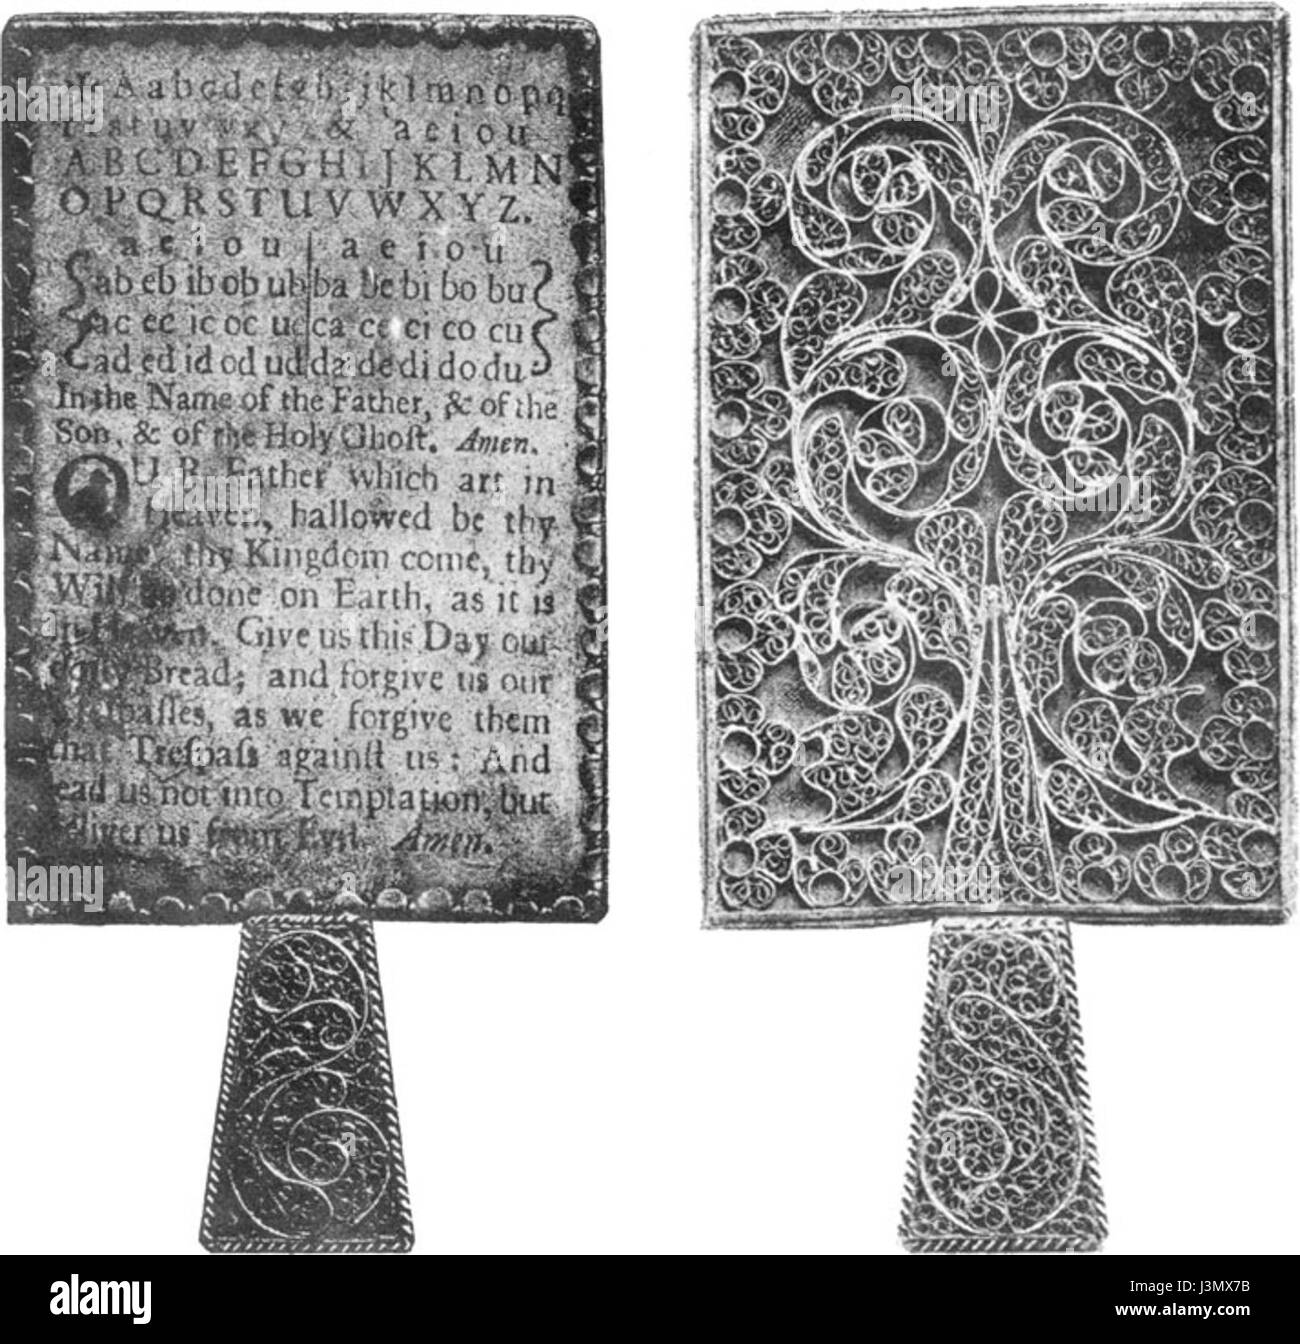 ✠ A a b c d e f g h i j k l m n o p q
r s t u v w x y z & a e i o u
A B C D E F G H I J K L M N
O P Q R S T U V W X Y Z.
a e i o u a e i o u
ab eb ib ob ub ba be bi bo bu
ac ec ic oc uc ca ce ci co cu
ad ed id od ud da de di do du
In the Name of the Father, & of the
Son, & of the Holy Ghoſt. Amen.
OUR Father which art in
Heaven, hallowed be thy
Name, thy Kingdom come, thy
Will be done on Earth, as it is
in Heaven. Give us this Day our
daily Bread; and forgive us our
Treſpaſſes, as we forgive them
that Treſpaſs againſt us: And
lead us not into Temptation, but
deliver us from Evil. Amen.
alamy
Image ID: J3MX7B
www.alamy.com